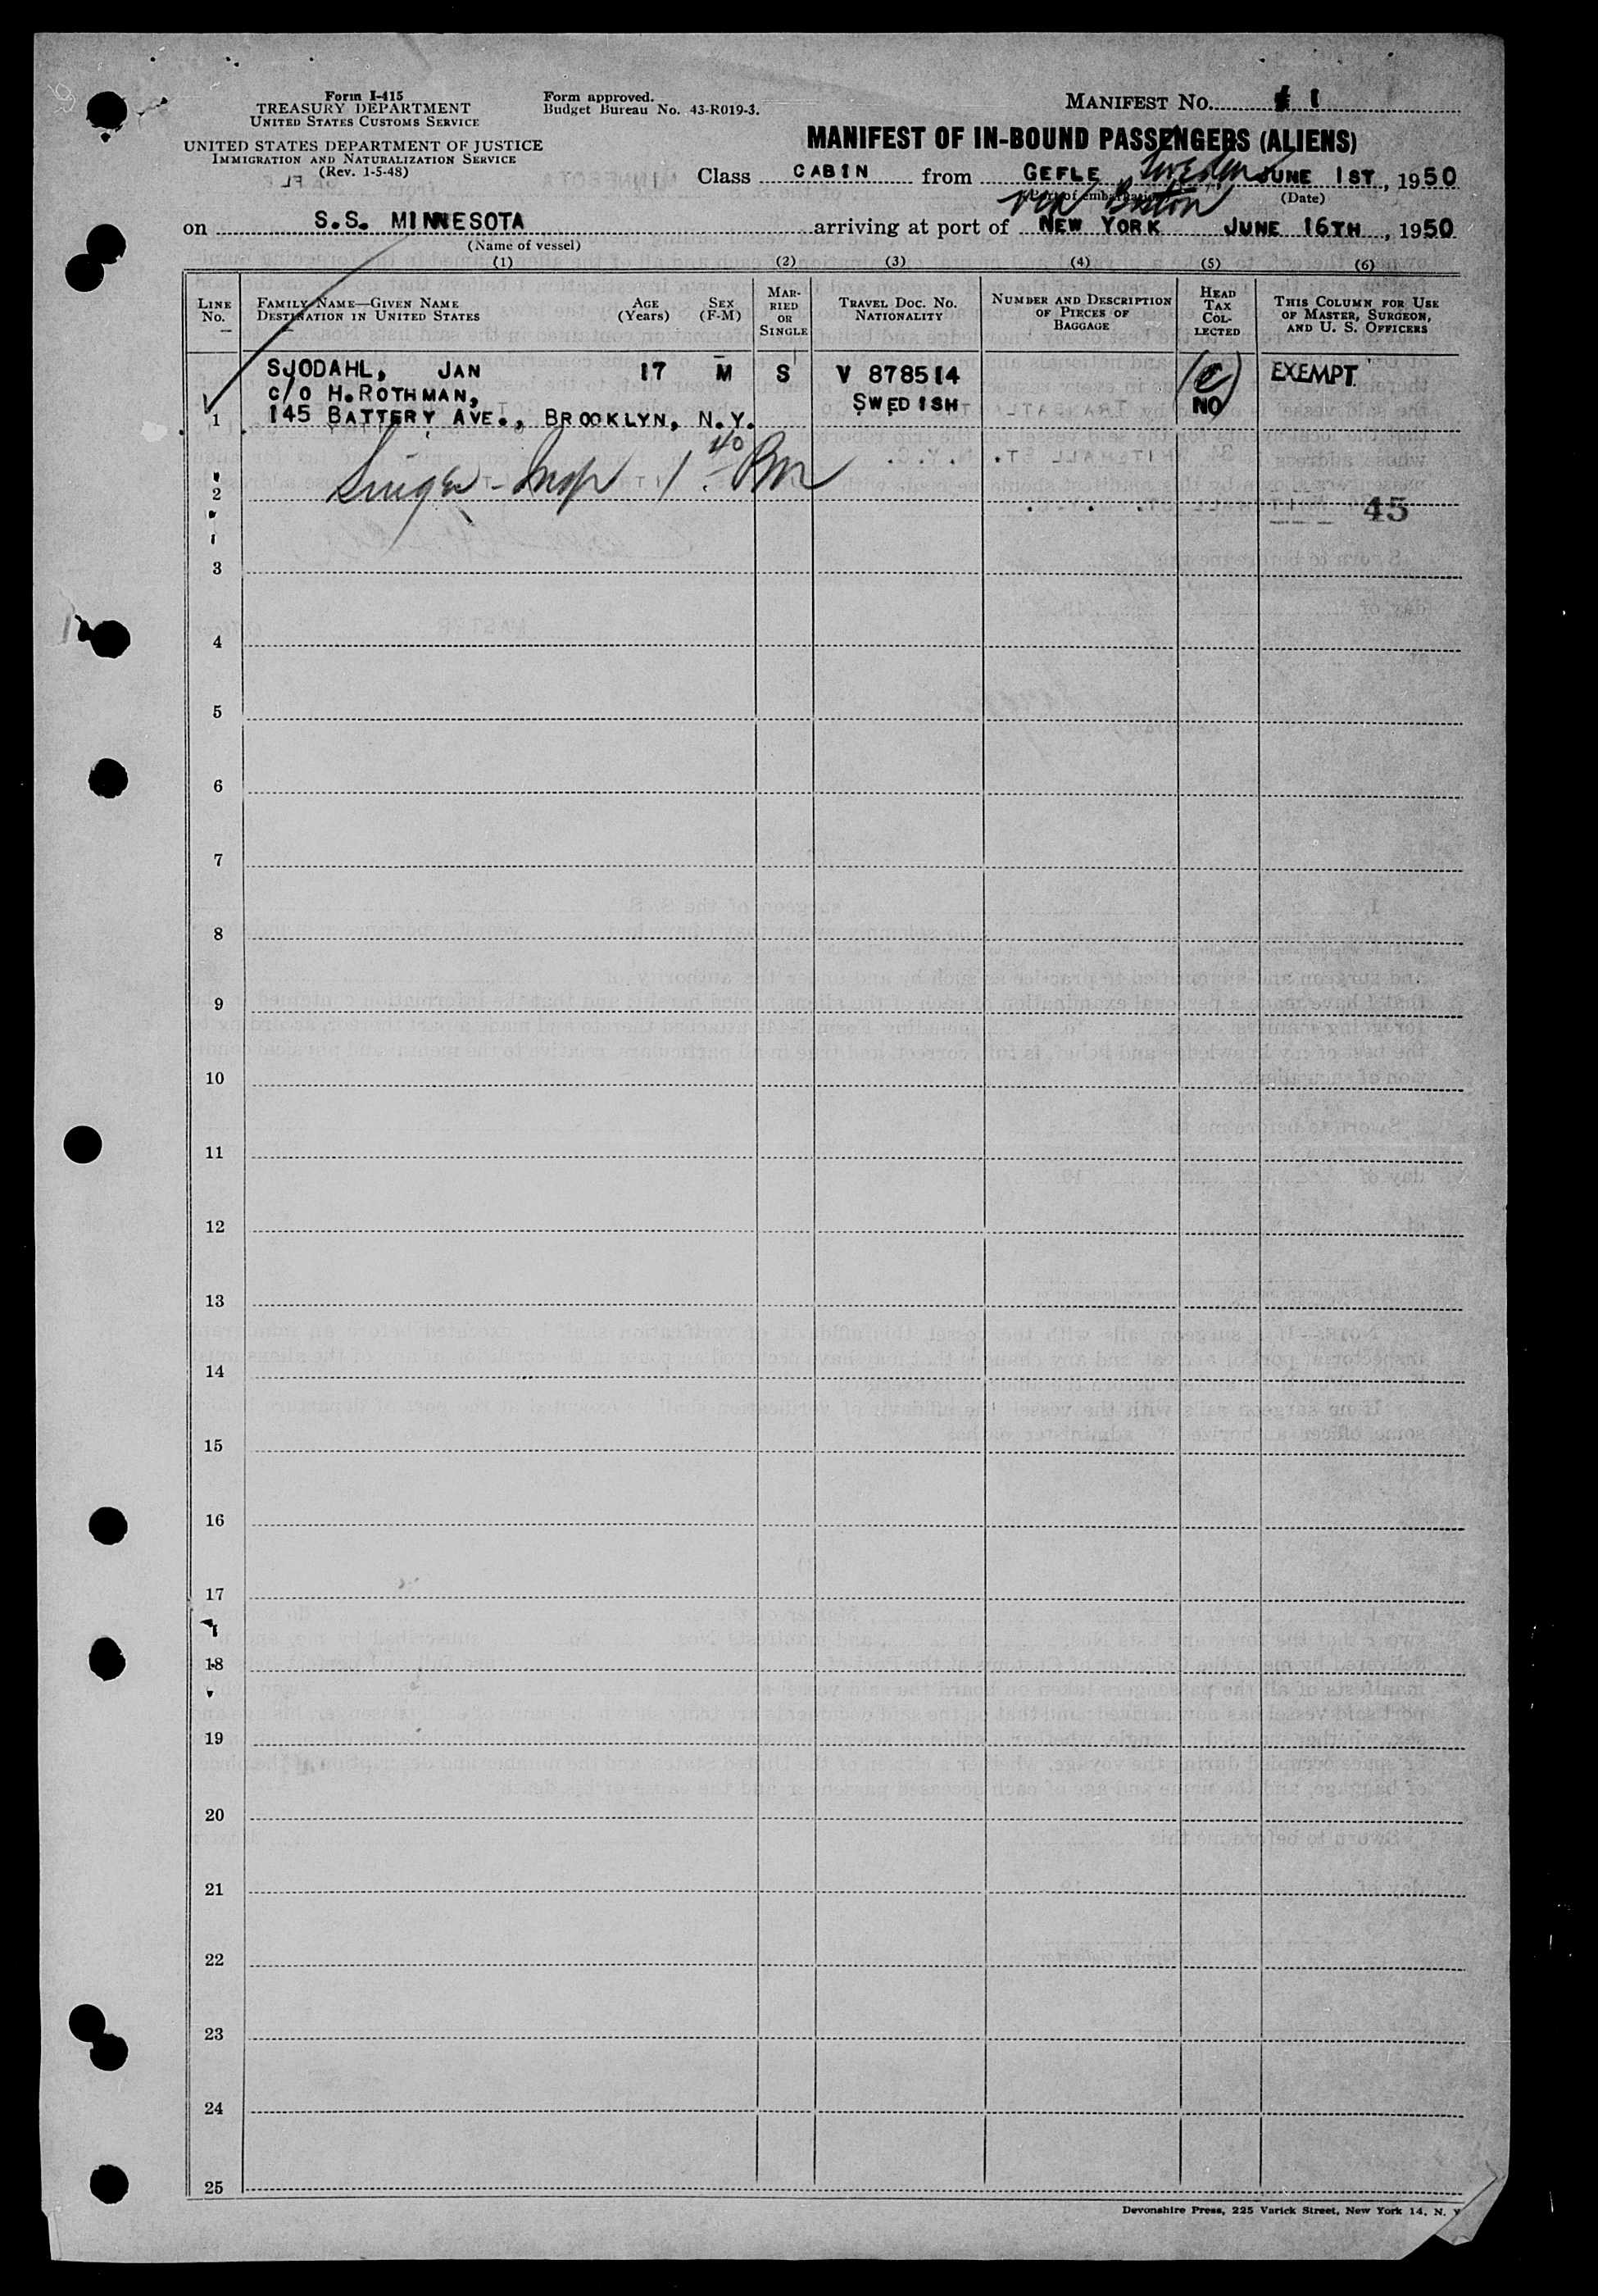 Form I-415
TREASURY DEPARTMENT
UNITED STATES CUSTOMS SERVICE
UNITED STATES DEPARTMENT OF JUSTICE
IMMIGRATION AND NATURALIZATION SERVICE
(Rev. 1-5-48)
Form approved.
Budget Bureau No. 43-R019-3.
MANIFEST No. 1
MANIFEST OF IN-BOUND PASSENGERS (ALIENS)
Class CABIN from GEFLE, Sweden JUNE 1ST, 1950
(Port of embarkation) (Date)
via Boston
on S.S. MINNESOTA arriving at port of NEW YORK JUNE 16TH, 1950
(Name of vessel)
(1) (2) (3) (4) (5) (6)
LINE No. FAMILY NAME—GIVEN NAME DESTINATION IN UNITED STATES AGE (Years) SEX (F-M) MARRIED OR SINGLE TRAVEL DOC. NO. NATIONALITY NUMBER AND DESCRIPTION OF PIECES OF BAGGAGE HEAD TAX COLLECTED THIS COLUMN FOR USE OF MASTER, SURGEON, AND U. S. OFFICERS
SJODAHL, JAN 17 M S V 878514 EXEMPT
C/O H. ROTHMAN, SWEDISH NO
1 145 BATTERY AVE., BROOKLYN, N.Y.
Singer - Insp 1 40 Pm
2
45
3
4
5
6
7
8
9
10
11
12
13
14
15
16
17
18
19
20
21
22
23
24
25
Devonshire Press, 225 Varick Street, New York 14, N. Y